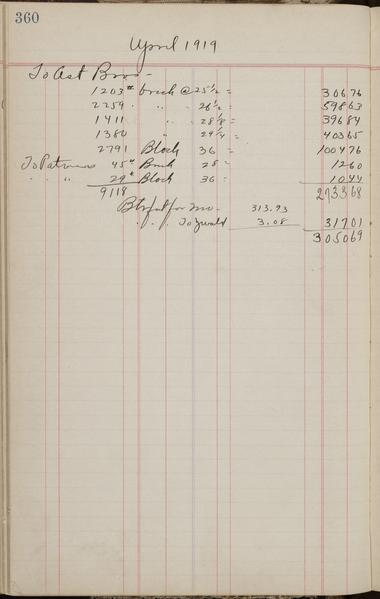 360
April 1919
To Ast Bros -
1203# brick @ 25 1/2 = 306 76
2259 " " 26 1/2 = 598 63
1411 " " 28 1/8 = 396 84
1380 " 29 1/4 = 403 65
2791 Block 36 = 1004 76
To Patrons 45# Brick 28 = 12 60
" " 29# Block 36 = 10 44
9118 2733 68
for mo - 313.93
" " " To 3.08 317 01
3050 69